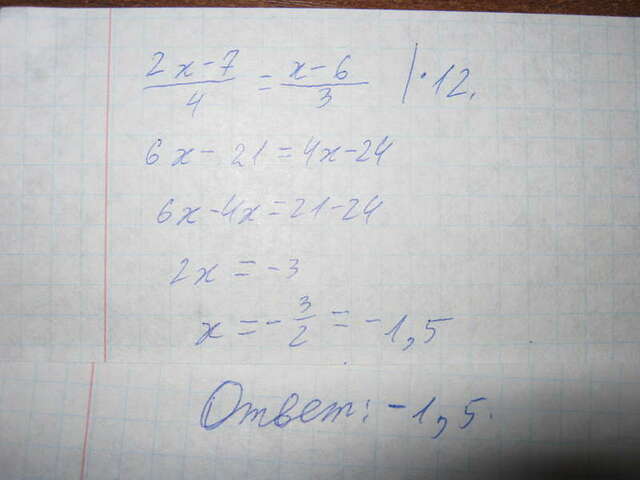 (2x-7)/4 = (x-6)/3 | · 12.
6x - 21 = 4x - 24
6x - 4x = 21 - 24
2x = -3
x = - 3/2 = - 1,5
Ответ: - 1,5.